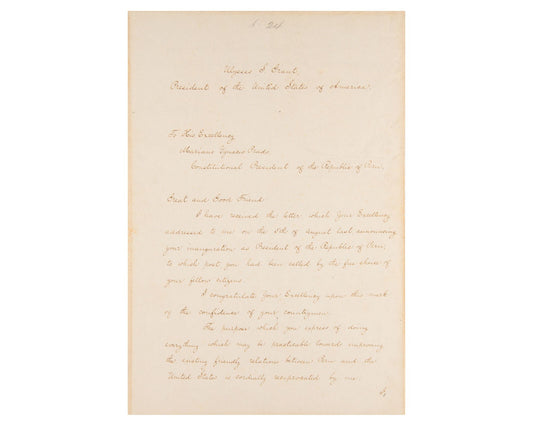 24
Ulysses S. Grant,
President of the United States of America,
To His Excellency
Mariano Ignacio Prado,
Constitutional President of the Republic of Peru,
Great and Good Friend:
I have received the letter which Your Excellency
addressed to me on the 5th of August last announcing
your inauguration as President of the Republic of Peru,
to which post you had been called by the free choice of
your fellow citizens.
I congratulate Your Excellency upon this mark
of the confidence of your countrymen.
The purpose which you express of doing
everything which may be practicable towards improving
the existing friendly relations between Peru and the
United States is cordially reciprocated by me.